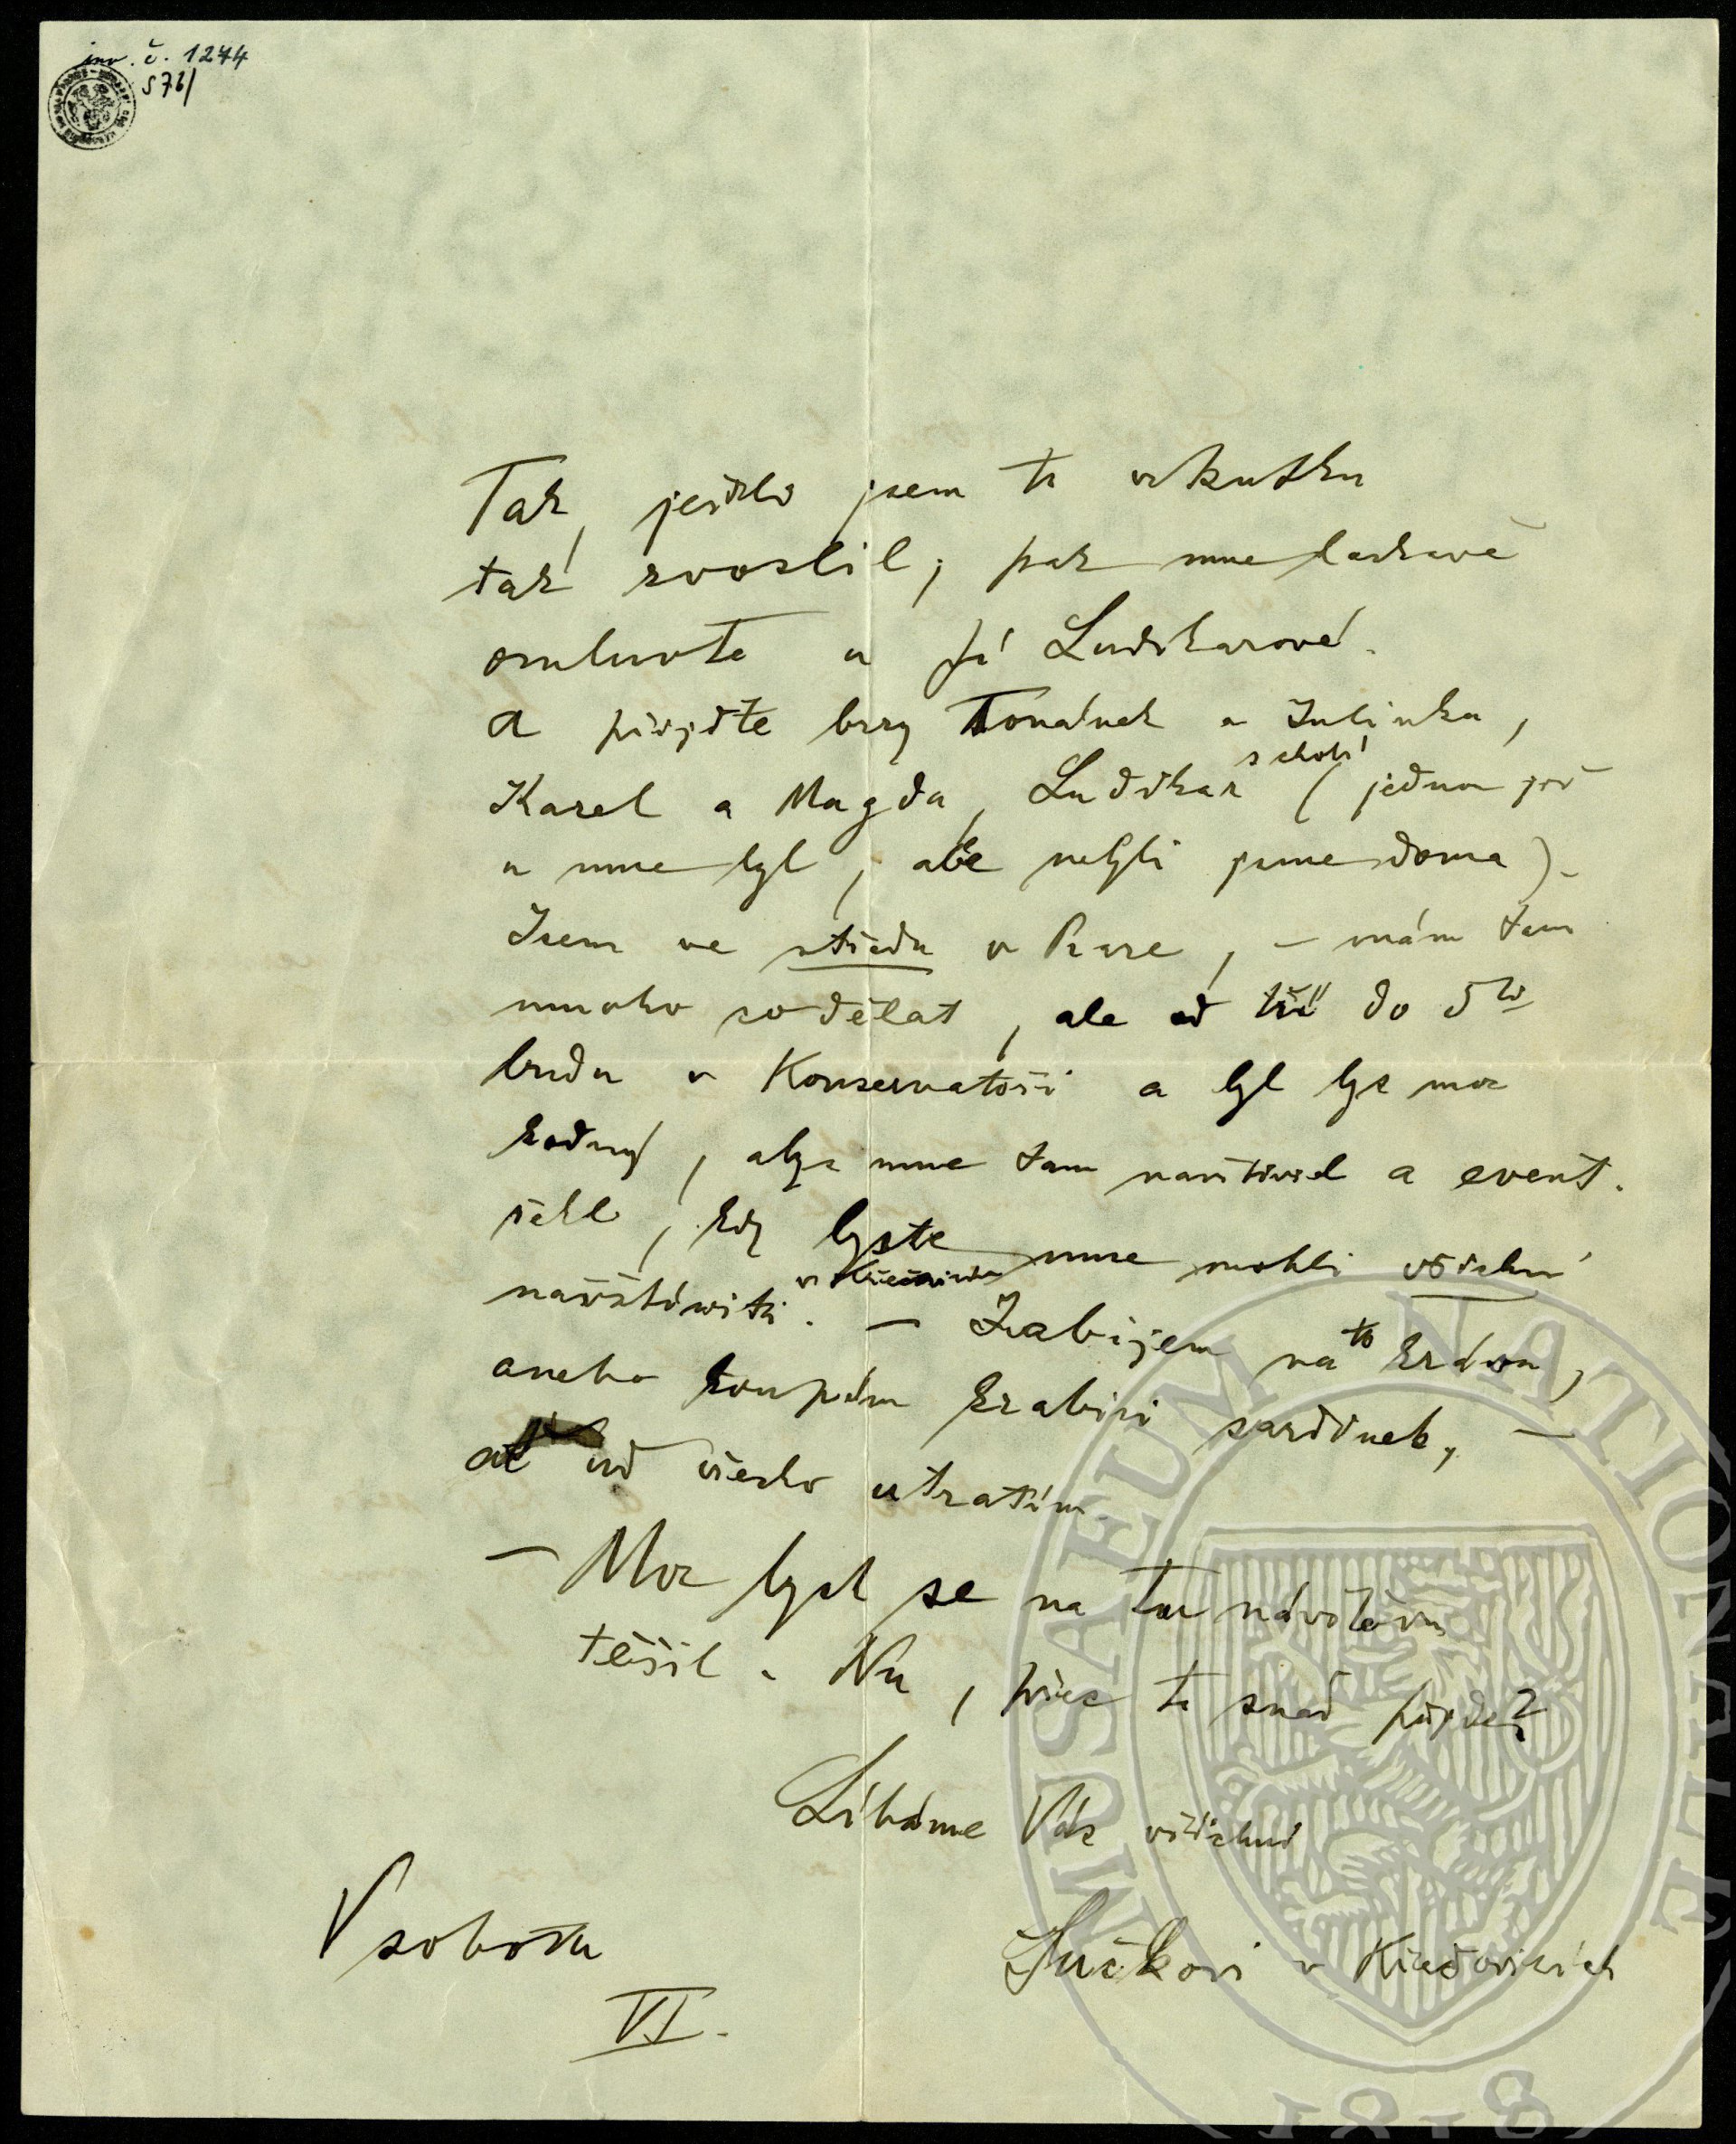 inv. č. 1244
S 76/
Tak, jestli jsem to vskutku
tak zvostlil, pak mne laskavě
omluvte u pí Ludikarové.
A přijďte brzy Tonánek a Julinka,
Karel a Magda, Ludikar s chotí (jednou již
u mne byl, ale nebyli jsme doma).
Jsem ve středu v Praze, – mám tam
mnoho co dělat, ale od tří do 5ti
budu v Konservatoři a byl bys moc
hodný, abys mne tam navštívil a event.
řekl, kdy byste mne mohli všichni
navštíviti v Křečovicích. – Zabijem na to krávu,
anebo koupím krabici sardinek, –
ať už všecko utratím.
– Moc bych se na tu návštěvu
těšil. Nu, přece to snad půjde?
Líbáme Vás všichni
V sobotu
Sučkovi v Křečovicích
VI.
MUSAEUM NATIONALE
1818